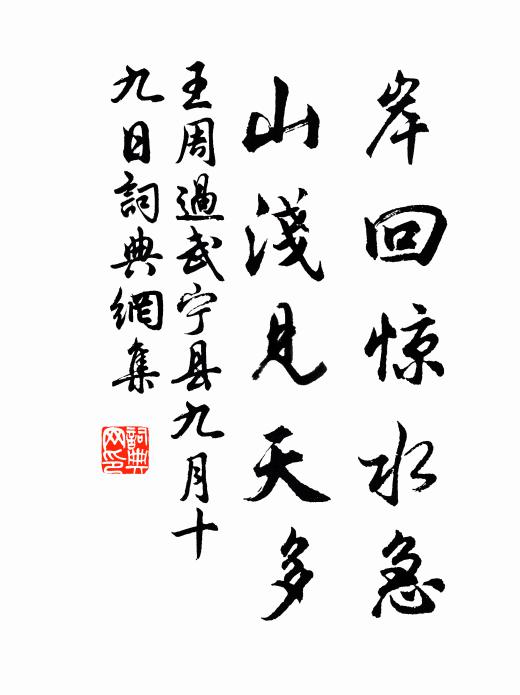 岸回惊水急
山淺見天多
王周過武宁县九月十
九日詞典網集
詞典网印